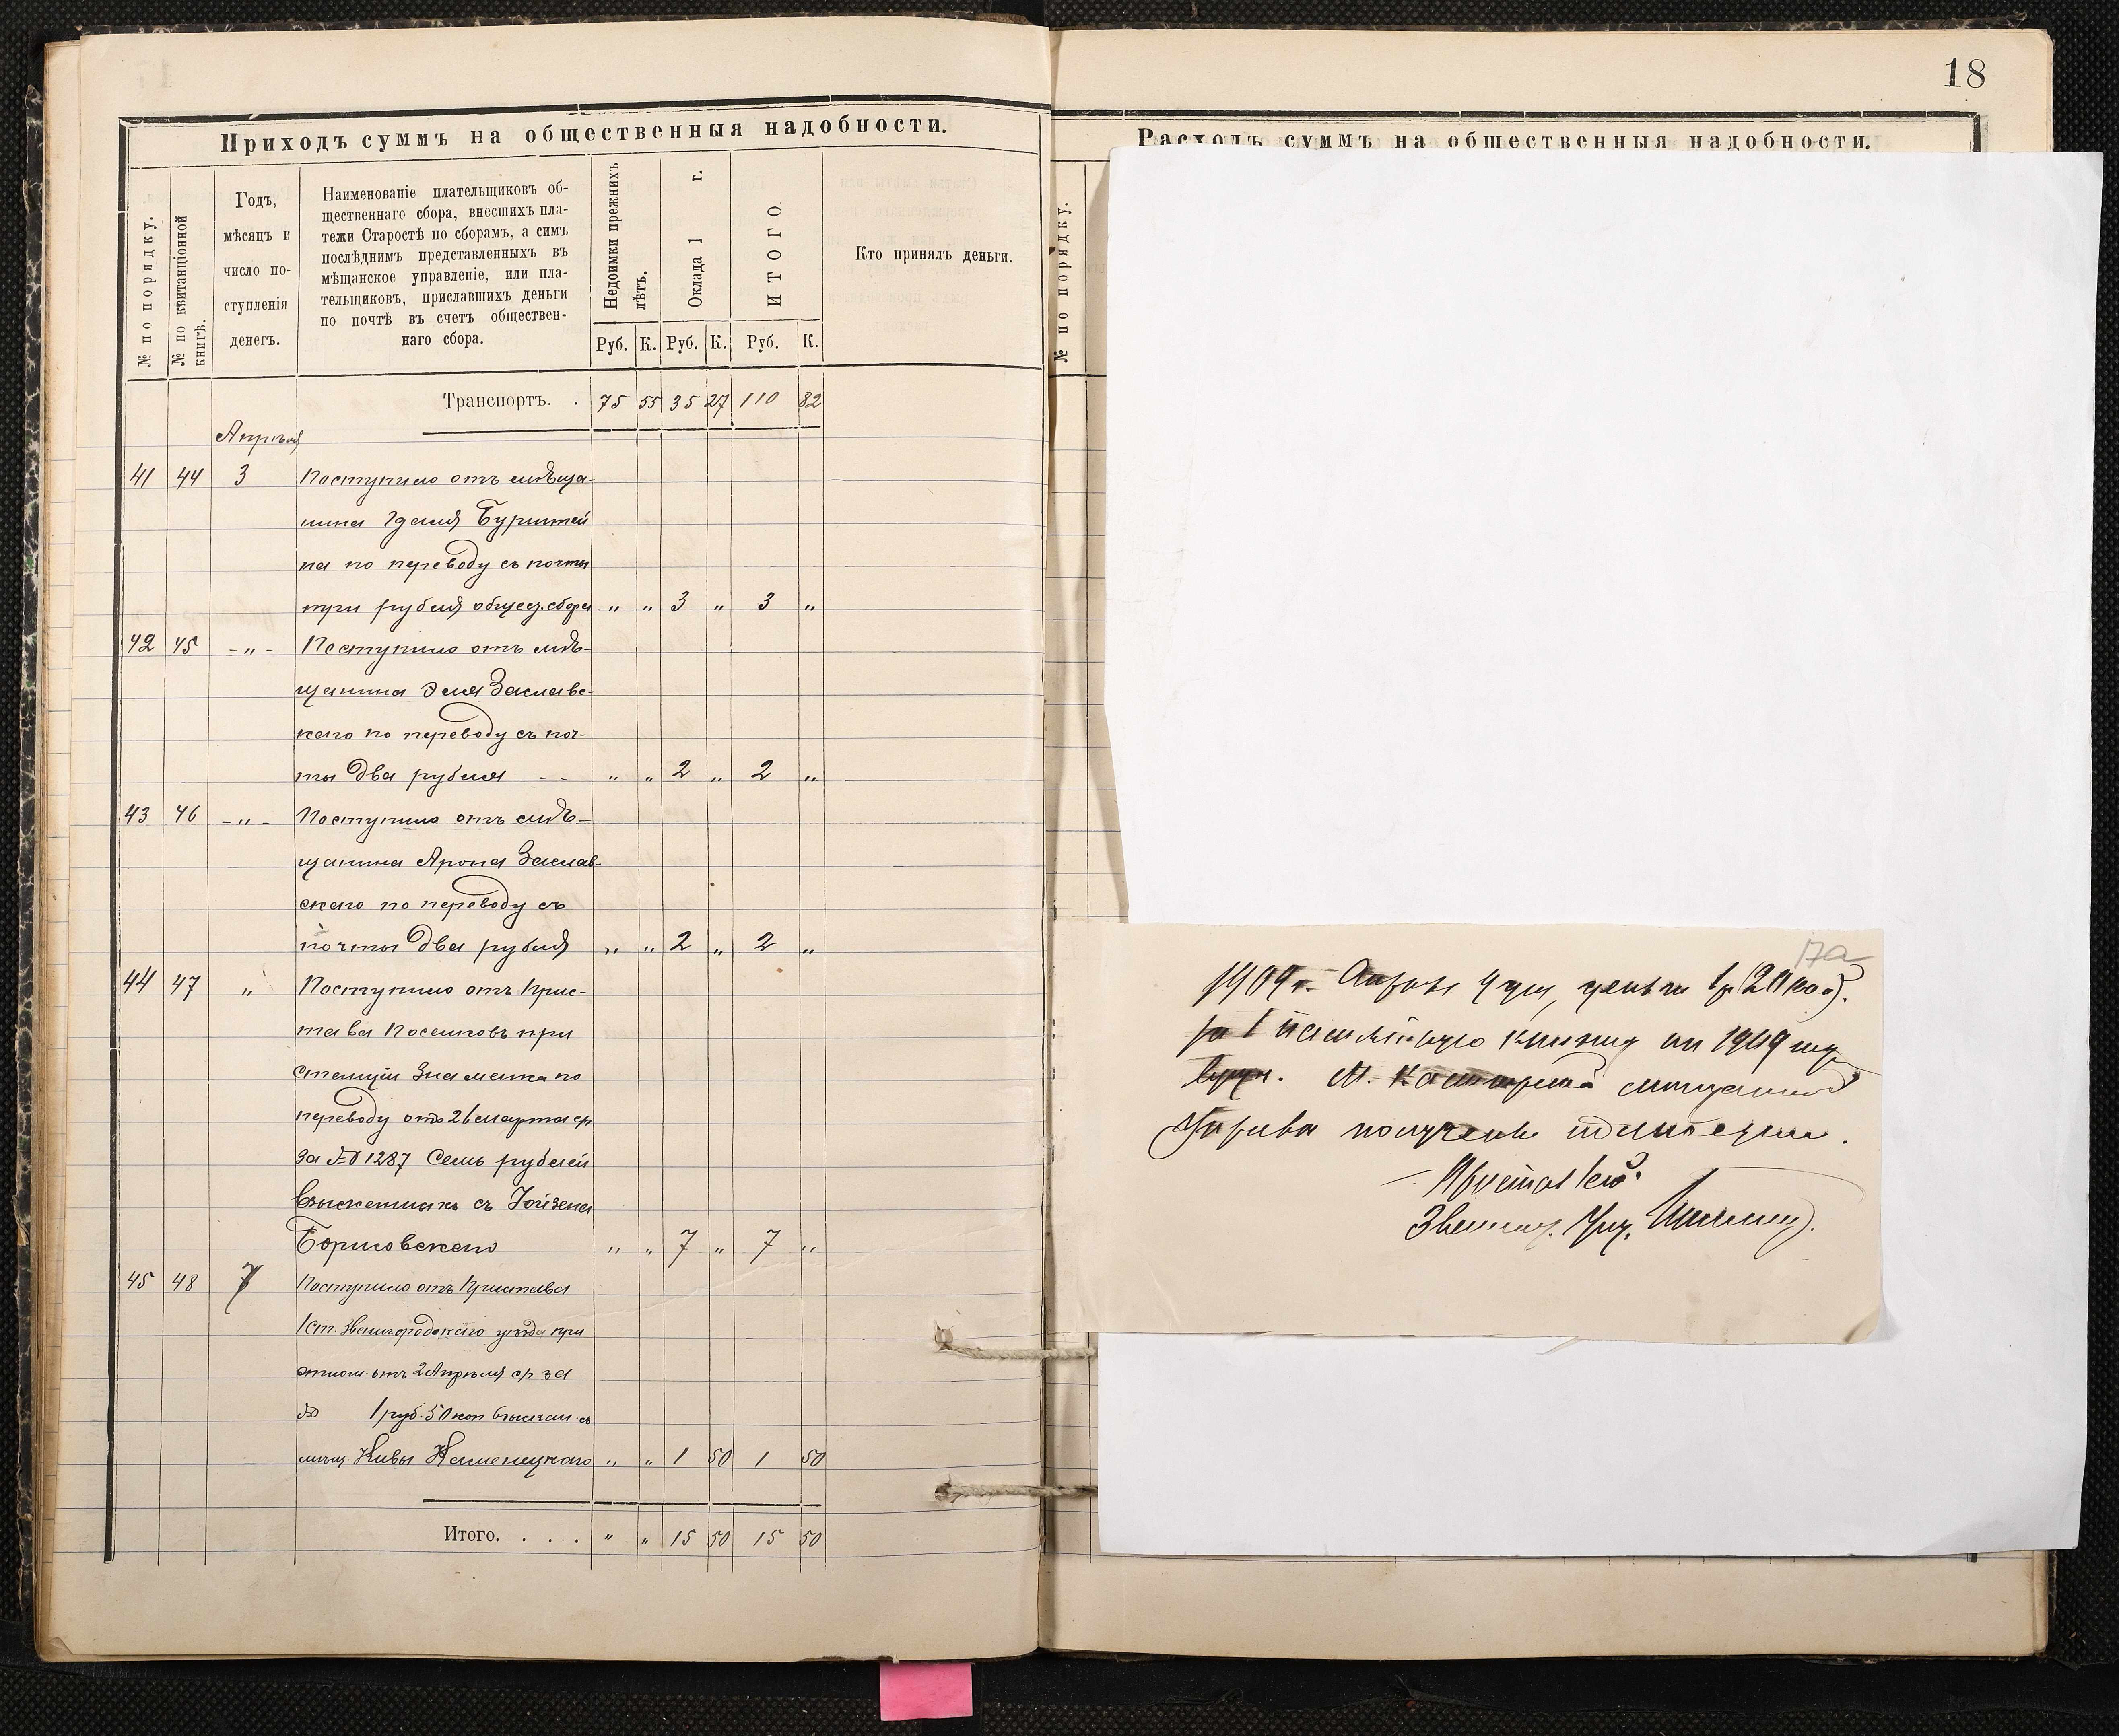 18
Приходъ суммъ на общественныя надобности.
№ по порядку.
№ по квитанціонной
книгѣ.
Годъ,
мѣсяцъ и
число по-
ступленія
денегъ.
Наименованіе плательщиковъ об-
щественнаго сбора, внесшихъ пла-
тежи Старостѣ по сборамъ, а симъ
послѣднимъ представленныхъ въ
мѣщанское управленіе, или пла-
тельщиковъ, приславшихъ деньги
по почтѣ въ счетъ обществен-
наго сбора.
Недоимки прежнихъ
лѣтъ.
Оклада 1 г.
ИТОГО.
Кто принялъ деньги.
Руб. К. Руб. К. Руб. К.
Транспортъ. . 75 55 35 27 110 82
Апрѣля
41 44 3 Поступило отъ мѣща-
нина Бурштей
на по переводу съ почты
три рубля общес. сбора " " 3 " 3 "
42 45 -"- Поступило отъ мѣ-
щанина Эля Заславс-
каго по переводу съ поч-
ты два рубля - - " " 2 " 2 "
43 46 -"- Поступило отъ мѣ-
щанина Арона Заслав-
скаго по переводу съ
почты два рубля " " 2 " 2 "
44 47 " Поступило отъ Прис-
тава Поселковъ при
станціи Знаменка по
переводу отъ 26 марта ср
за № 1287 Семь рублей
взысканныхъ съ
Борисовскаго " " 7 " 7 "
45 48 7 Поступило отъ Пристава
1 ст. Звенигородскаго уѣзда при
отнош. отъ 2 Апрѣля ср за
№ 1 руб. 50 коп взыскан. съ
мѣщ. Кивы Каменецкаго " " 1 50 1 50
Итого. . . . " " 15 50 15 50
Расходъ суммъ на общественныя надобности.
№ по порядку.
17а
1909 г. Апрѣля 4 дня, деньги 1 р 20 коп.
за 1 книжку на 1909 годъ
М. мѣщанской
Управы получены
Звениг. Уѣз.